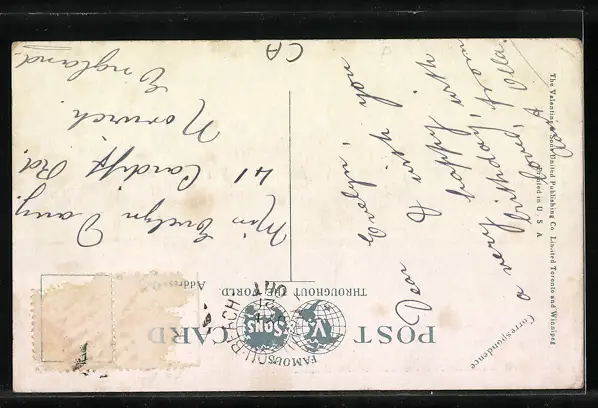 POST CARD
FAMOUS
THROUGHOUT THE WORLD
V.
& Sons
BEACH
ONT
Correspondence
Address
The Valentine & Sons United Publishing Co. Limited Toronto and Winnipeg
Printed in U. S. A
Dear
Evelyn,
I wish you
happy with
a very
birthday, from
love,
Aunt Ella.
Miss Evelyn
41 Cardiff Rd.
Norwich.
England.
CA